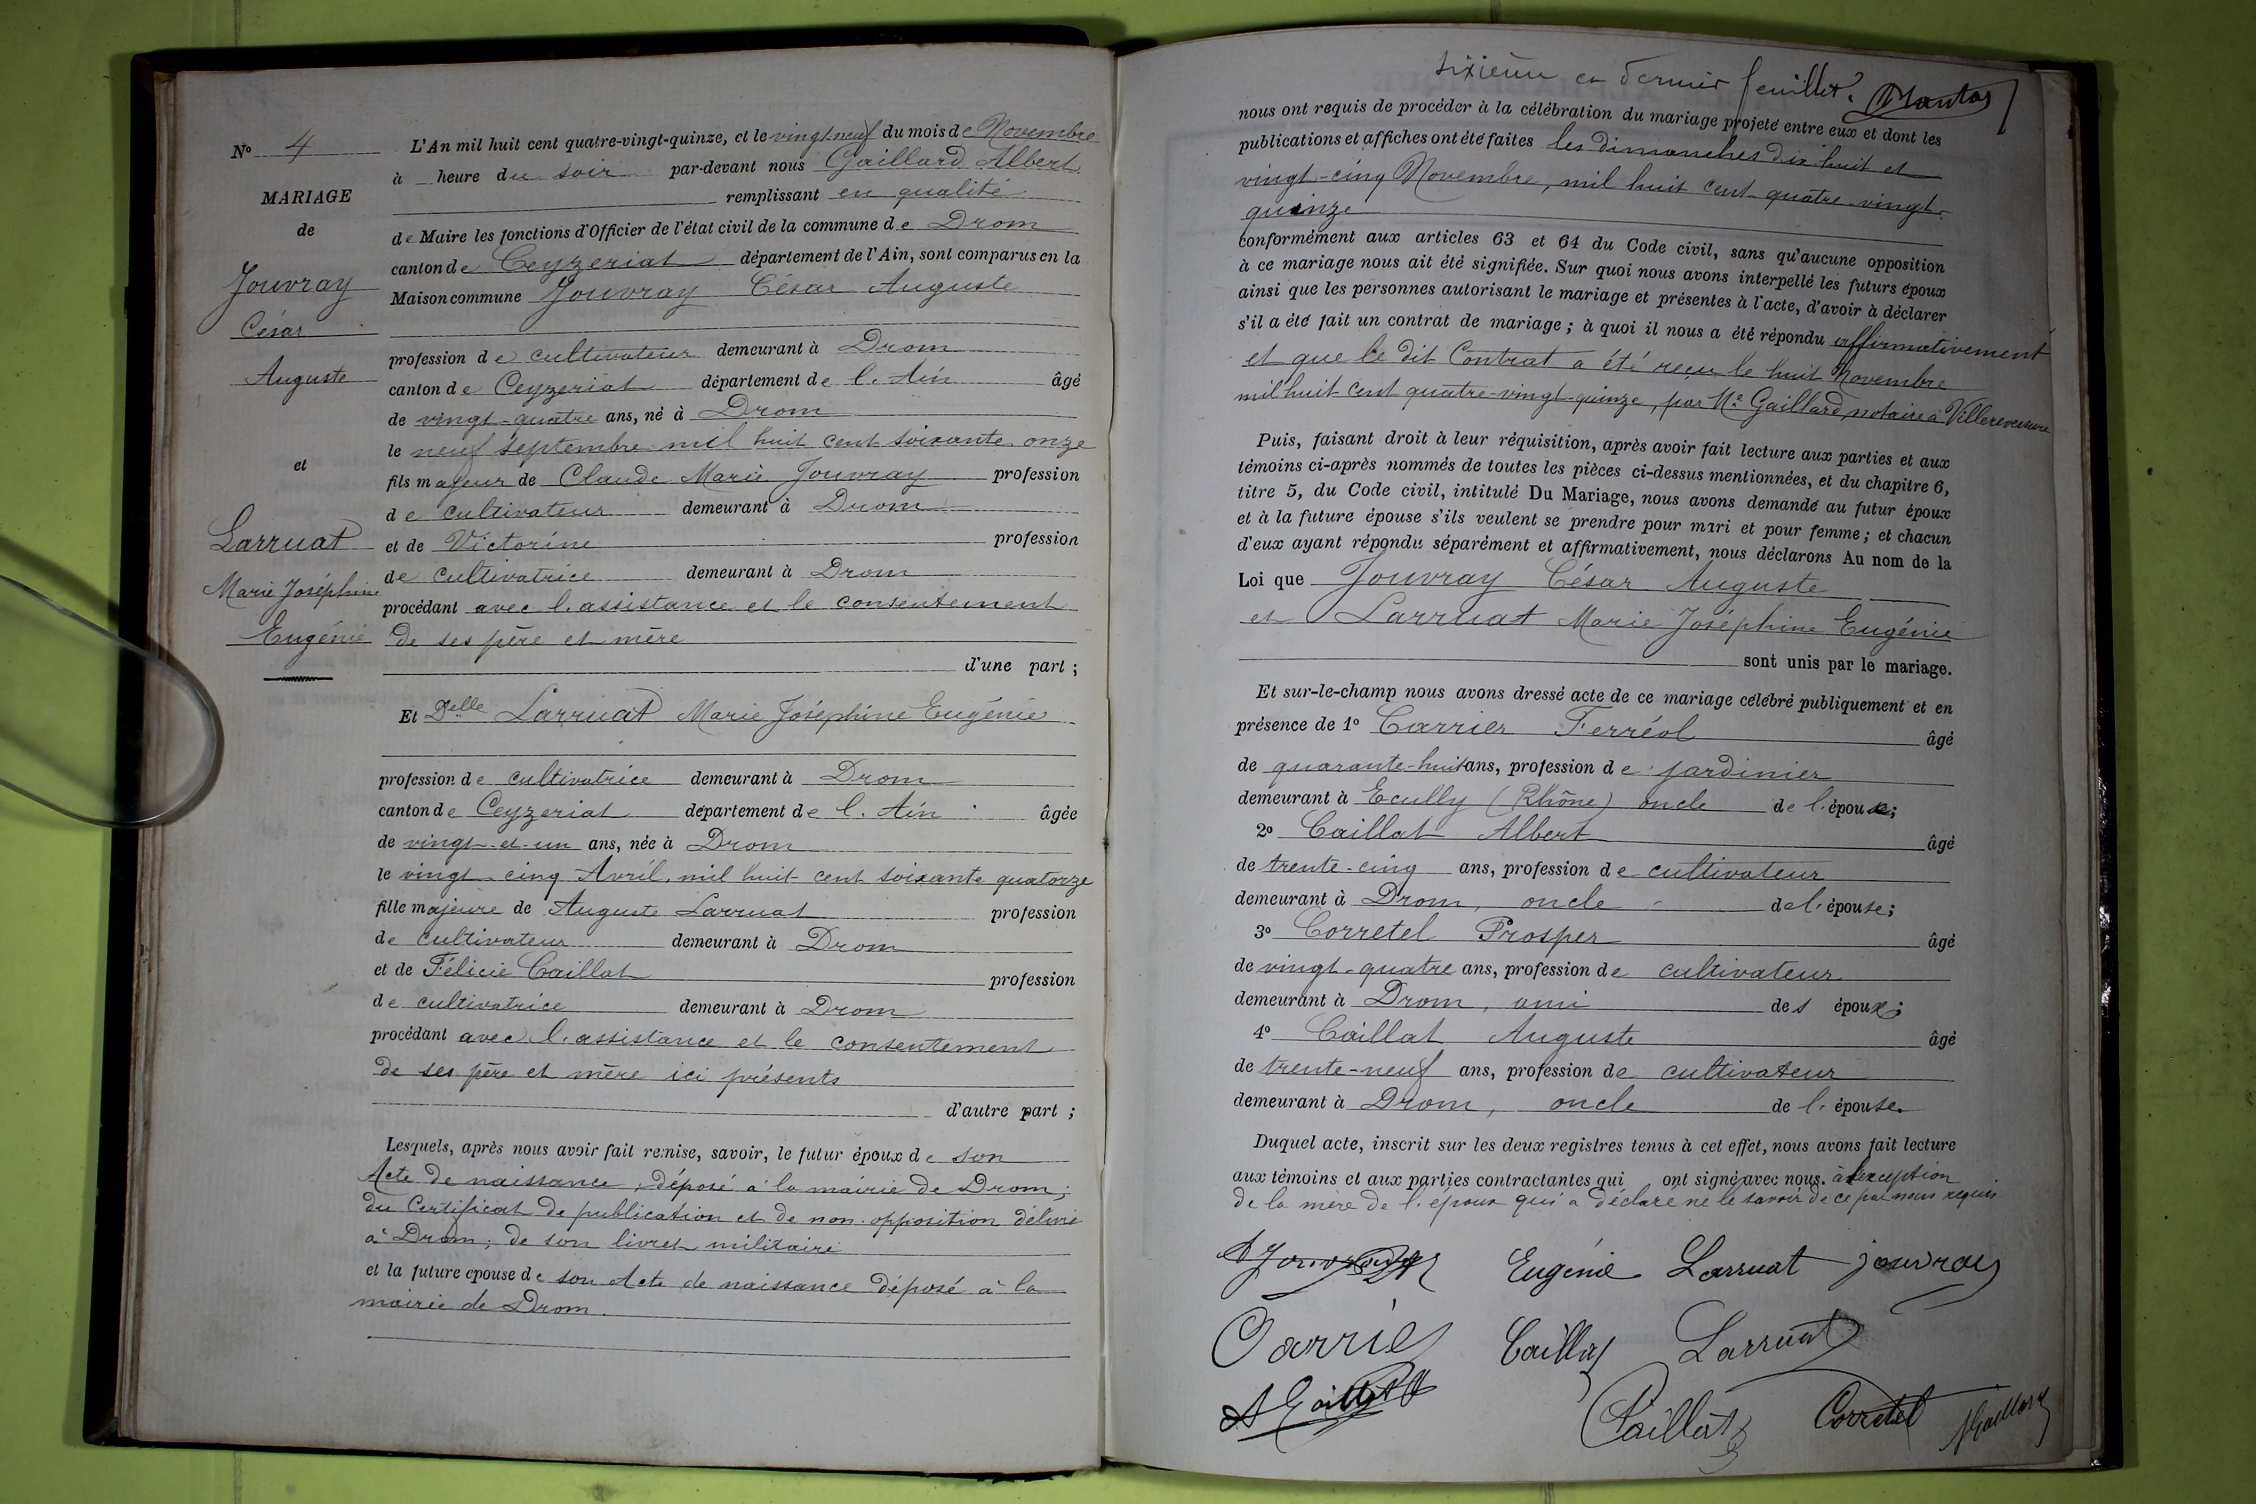 N° 4
MARIAGE
de
Jouvray
César
Auguste
et
Larruat
Marie Joséphine
Eugénie
L'An mil huit cent quatre-vingt-quinze, et le vingt neuf du mois de Novembre
à heure du soir par-devant nous Gaillard Albert
remplissant en qualité
de Maire les fonctions d'Officier de l'état civil de la commune de Drom
canton de Ceyzeriat département de l'Ain, sont comparus en la
Maison commune Jouvray César Auguste
profession de cultivateur demeurant à Drom
canton de Ceyzeriat département de l'Ain âgé
de vingt-quatre ans, né à Drom
le neuf septembre mil huit cent soixante onze
fils majeur de Claude Marie Jouvray profession
de cultivateur demeurant à Drom
et de Victorine profession
de cultivatrice demeurant à Drom
procédant avec l'assistance et le consentement
de ses père et mère
d'une part ;
Et Delle Larruat Marie Joséphine Eugénie
profession de cultivatrice demeurant à Drom
canton de Ceyzeriat département de l'Ain âgée
de vingt-et-un ans, née à Drom
le vingt-cinq Avril mil huit cent soixante quatorze
fille majeure de Auguste Larruat profession
de cultivateur demeurant à Drom
et de Félicie Caillat profession
de cultivatrice demeurant à Drom
procédant avec l'assistance et le consentement
de ses père et mère ici présents
d'autre part ;
Lesquels, après nous avoir fait remise, savoir, le futur époux de son
Acte de naissance, déposé à la mairie de Drom ;
du Certificat de publication et de non-opposition délivré
à Drom ; de son livret militaire
et la future epouse de son Acte de naissance déposé à la
mairie de Drom.
sixième et dernier feuillet.
nous ont requis de procéder à la célébration du mariage projeté entre eux et dont les
publications et affiches ont été faites les dimanches dix-huit et
vingt-cinq Novembre, mil huit cent quatre-vingt-
quinze
conformément aux articles 63 et 64 du Code civil, sans qu'aucune opposition
à ce mariage nous ait été signifiée. Sur quoi nous avons interpellé les futurs époux
ainsi que les personnes autorisant le mariage et présentes à l'acte, d'avoir à déclarer
s'il a été fait un contrat de mariage ; à quoi il nous a été répondu affirmativement
et que le dit Contrat a été reçu le huit Novembre
mil huit cent quatre-vingt-quinze, par Me Gaillard, notaire à Villereversure
Puis, faisant droit à leur réquisition, après avoir fait lecture aux parties et aux
témoins ci-après nommés de toutes les pièces ci-dessus mentionnées, et du chapitre 6,
titre 5, du Code civil, intitulé Du Mariage, nous avons demandé au futur époux
et à la future épouse s'ils veulent se prendre pour mari et pour femme ; et chacun
d'eux ayant répondu séparément et affirmativement, nous déclarons Au nom de la
Loi que Jouvray César Auguste
et Larruat Marie Joséphine Eugénie
sont unis par le mariage.
Et sur-le-champ nous avons dressé acte de ce mariage célébré publiquement et en
présence de 1° Carrier Ferréol âgé
de quarante-huit ans, profession de jardinier
demeurant à Ecully (Rhône) oncle de l'époux ;
2° Caillat Albert âgé
de trente-cinq ans, profession de cultivateur
demeurant à Drom, oncle de l'épouse ;
3° Corretel Prosper âgé
de vingt-quatre ans, profession de cultivateur
demeurant à Drom, ami des époux ;
4° Caillat Auguste âgé
de trente-neuf ans, profession de cultivateur
demeurant à Drom, oncle de l'épouse.
Duquel acte, inscrit sur les deux registres tenus à cet effet, nous avons fait lecture
aux témoins et aux parties contractantes qui ont signé avec nous. à l'exception
de la mère de l'époux qui a déclaré ne le savoir de ce par nous requis
Eugénie Larruat jouvray
Carrier Caillat Larruat
Caillat Corretel AGaillard